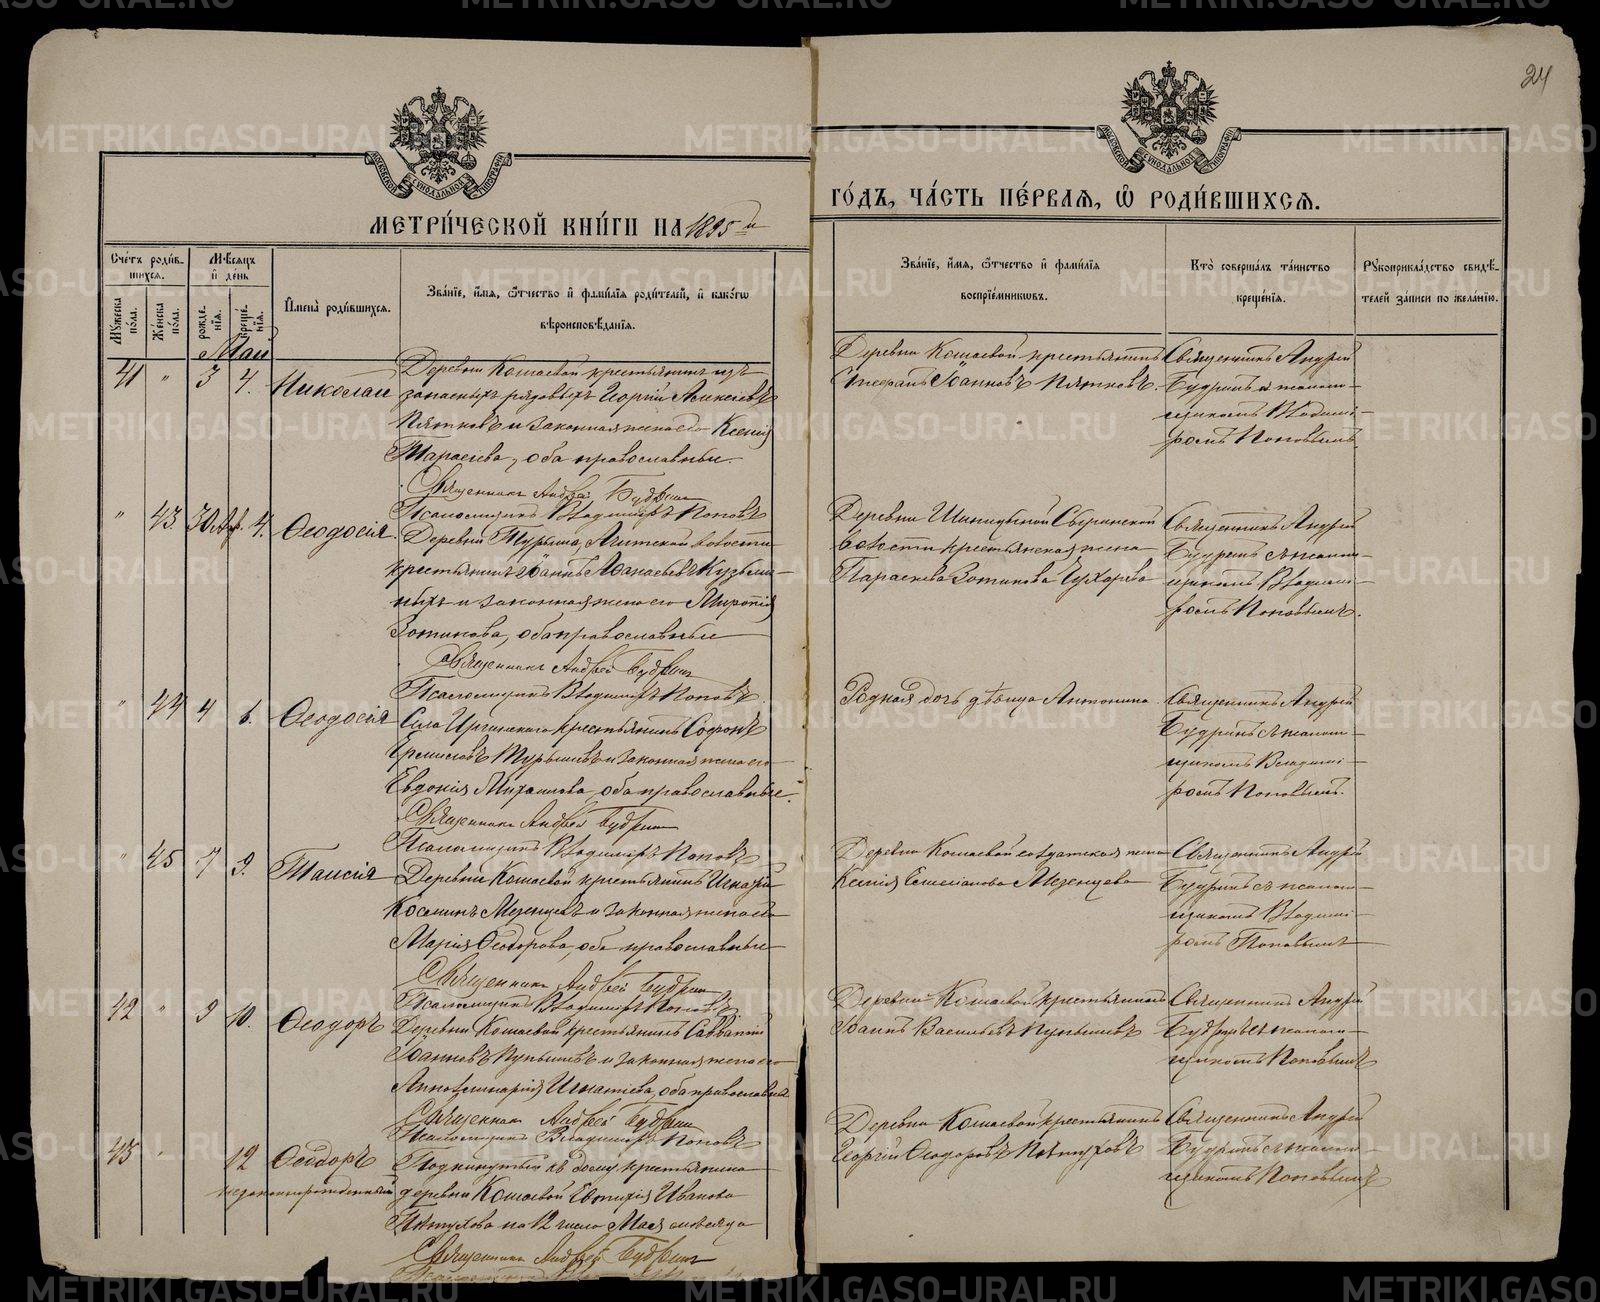 24
МОСКОВСКОЙ СѴНОДАЛЬНОЙ ТИПОГРАФІИ
МОСКОВСКОЙ СѴНОДАЛЬНОЙ ТИПОГРАФІИ
МЕТРИ́ЧЕСКОЙ КНИ́ГИ НА 1895 й
ГО́ДЪ, ЧА́СТЬ ПЕ́РВАЯ, Ѿ РОДИ́ВШИХСЯ.
Счетъ роди́вшихся.
Мѣсяцъ и день
Имена̀ роди́вшихся.
Зва́ніе, и́мя, ѻ҆́тчество и фами́лія роди́телей, и како́гѡ
вѣроисповѣ́данія.
Мꙋжеска по́ла.
Же́нска по́ла.
рожде́нія.
креще́нія.
Зва́ніе, и́мя, ѻ҆́тчество и фами́лія
воспріе́мникѡвъ.
Кто̀ соверша́лъ та́инство
креще́нія.
Рꙋкоприкла́дство свидѣ́телей за́писи по жела́нію.
Май
41 " 3 4. Николай
Деревни Кошаевой крестьянинъ изъ
запасныхъ рядовыхъ Георгій Алексѣевъ
Пятковъ и законная жена его Ксенія
Тарасіева, оба православные.
Священникъ Андрей Будринъ
Псаломщикъ Владиміръ Поповъ
Деревни Кошаевой крестьянинъ
Стефанъ Іоанновъ Пятковъ.
Священникъ Андрей
Будринъ съ псалом-
щикомъ Владимі-
ромъ Поповымъ
" 43 30 Апр. 4. Ѳеодосія.
Деревни Турыша, Ачитской волости
крестьянинъ Іоаннъ Аѳанасьевъ Кузьми-
ныхъ и законная жена его Миропія
Зотикова, оба православные
Священникъ Андрей Будринъ
Псаломщикъ Владиміръ Поповъ
волости крестьянская жена
Параскева Зотикова
Священникъ Андрей
Будринъ съ псалом-
щикомъ Владимі-
ромъ Поповымъ.
" 44 4 6. Ѳеодосія
Села Иргинскаго крестьянинъ Софонъ
Ермиловъ Турышевъ и законная жена его
Евдокія Михаилова, оба православные.
Священникъ Андрей Будринъ
Псаломщикъ Владиміръ Поповъ
Родная дочь дѣвица Антонина
Священникъ Андрей
Будринъ съ псалом-
щикомъ Владимі-
ромъ Поповымъ.
" 45 7 9. Таисія
Деревни Кошаевой крестьянинъ Игнатій
Косминъ Мезенцевъ и законная жена его
Марія Ѳеодорова, оба православные
Священникъ Андрей Будринъ
Псаломщикъ Владиміръ Поповъ
Деревни Кошаевой солдатская жена
Ксенія Емеліанова Мезенцева
Священникъ Андрей
Будринъ съ псалом-
щикомъ Владимі-
ромъ Поповымъ
42 " 9 10. Ѳеодоръ
Деревни Кошаевой крестьянинъ Савватій
Іоанновъ Пупышевъ и законная жена его
Игнатіева, оба православные
Священникъ Андрей Будринъ
Псаломщикъ Владиміръ Поповъ
Деревни Кошаевой крестьянинъ
Іоаннъ Васильевъ Пупышевъ
Священникъ Андрей
Будринъ съ псалом-
щикомъ Поповымъ
43 " 12 Ѳеодоръ
незаконнорожденный
Подкинутый къ дому крестьянина
деревни Кошаевой Евтихія Иванова
Пѣтухова на 12 число Мая мѣсяца
Священникъ Андрей Будринъ
Деревни Кошаевой крестьянинъ
Георгій Ѳеодоровъ Пѣтуховъ
Священникъ Андрей
Будринъ съ псалом-
щикомъ Поповымъ
METRIKI.GASO-URAL.RU